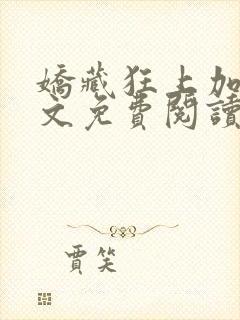 嬌藏狂上加
文免費閱讀
賈笑